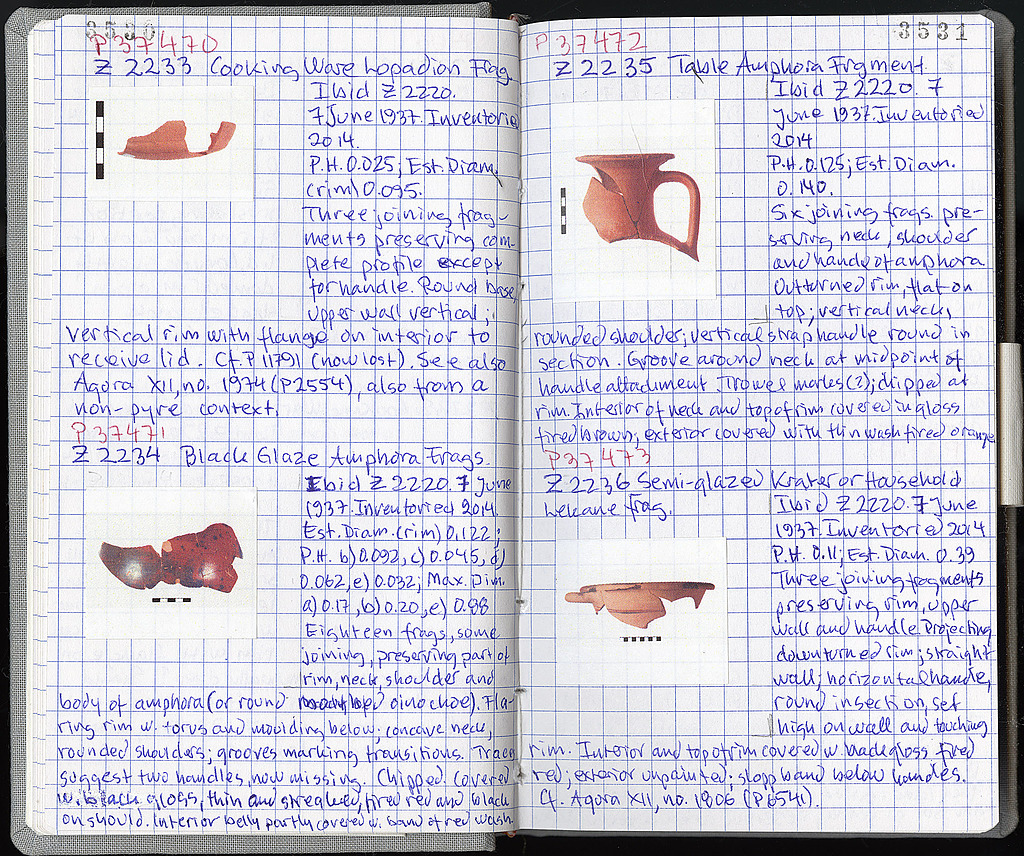 3530
P 37470
Z 2233 Cooking Ware Lopadion Frag.
Ibid Z 2220.
7 June 1937. Inventoried
2014.
P.H. 0.025; Est. Diam.
(rim) 0.095.
Three joining frag-
ments preserving com-
plete profile except
for handle. Round base,
upper wall vertical;
vertical rim with flange on interior to
receive lid. Cf. P 11791 (now lost). See also
Agora XII, no. 1974 (P2554), also from a
non-pyre context.
P 37471
Z 2234 Black Glaze Amphora Frags.
Ibid Z 2220. 7 June
1937. Inventoried 2014.
Est. Diam. (rim) 0.122;
P.H. b) 0.092, c) 0.045, d)
0.062, e) 0.032; Max. Dim.
a) 0.17, b) 0.20, e) 0.88
Eighteen frags, some
joining, preserving part of
rim, neck, shoulder and
body of amphora (or round mouthed oinochoe). Fla-
ring rim w. torus and moulding below; concave neck,
rounded shoulders; grooves marking transitions. Traces
suggest two handles, now missing. Chipped. Covered
w. black gloss, thin and streaked, fired red and black
on should. Interior belly partly covered w. band of red wash.
3531
P 37472
Z 2235 Table Amphora Frgment
Ibid Z 2220. 7
June 1937. Inventoried
2014
P.H. 0.125; Est. Diam.
0.140.
Six joining frags. pre-
serving neck, shoulder
and handle of amphora.
Outturned rim, flat on
top; vertical neck,
rounded shoulder; vertical strap handle round in
section. Groove around neck at midpoint of
handle attachment. Trowel marks (?); chipped at
rim. Interior of neck and top of rim covered in gloss
fired brown; exterior covered with thin wash fired orange.
P 37473
Z 2236 Semi-glazed Krater or Household
Lekane frag.
Ibid Z 2220. 7 June
1937. Inventoried 2014
P.H. 0.11; Est. Diam. 0.39
Three joining fragments
preserving rim, upper
wall and handle. Projecting
downturned rim; straight
wall; horizontal handle,
round in section, set
high on wall and touching
rim. Interior and top of rim covered w. black gloss fired
red; exterior unpainted; slopp band below handles.
Cf. Agora XII, no. 1806 (P 6541).